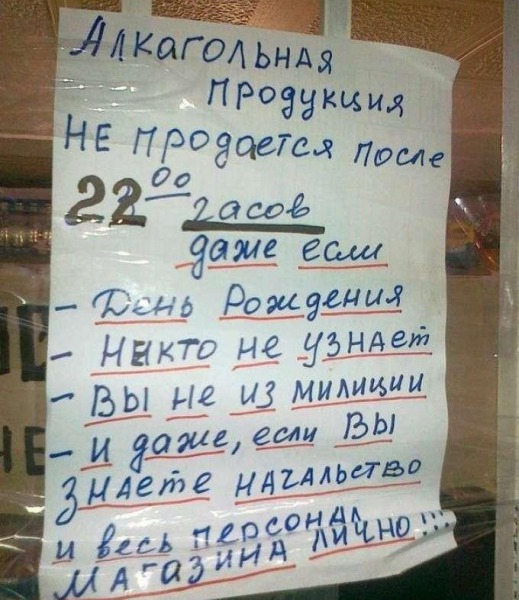 Алкагольная
продукция
не продается после
22⁰⁰ часов
даже если
- День Рождения
- Никто не узнает
- Вы не из милиции
- и даже, если Вы
знаете начальство
и весь персонал
магазина лично!!!